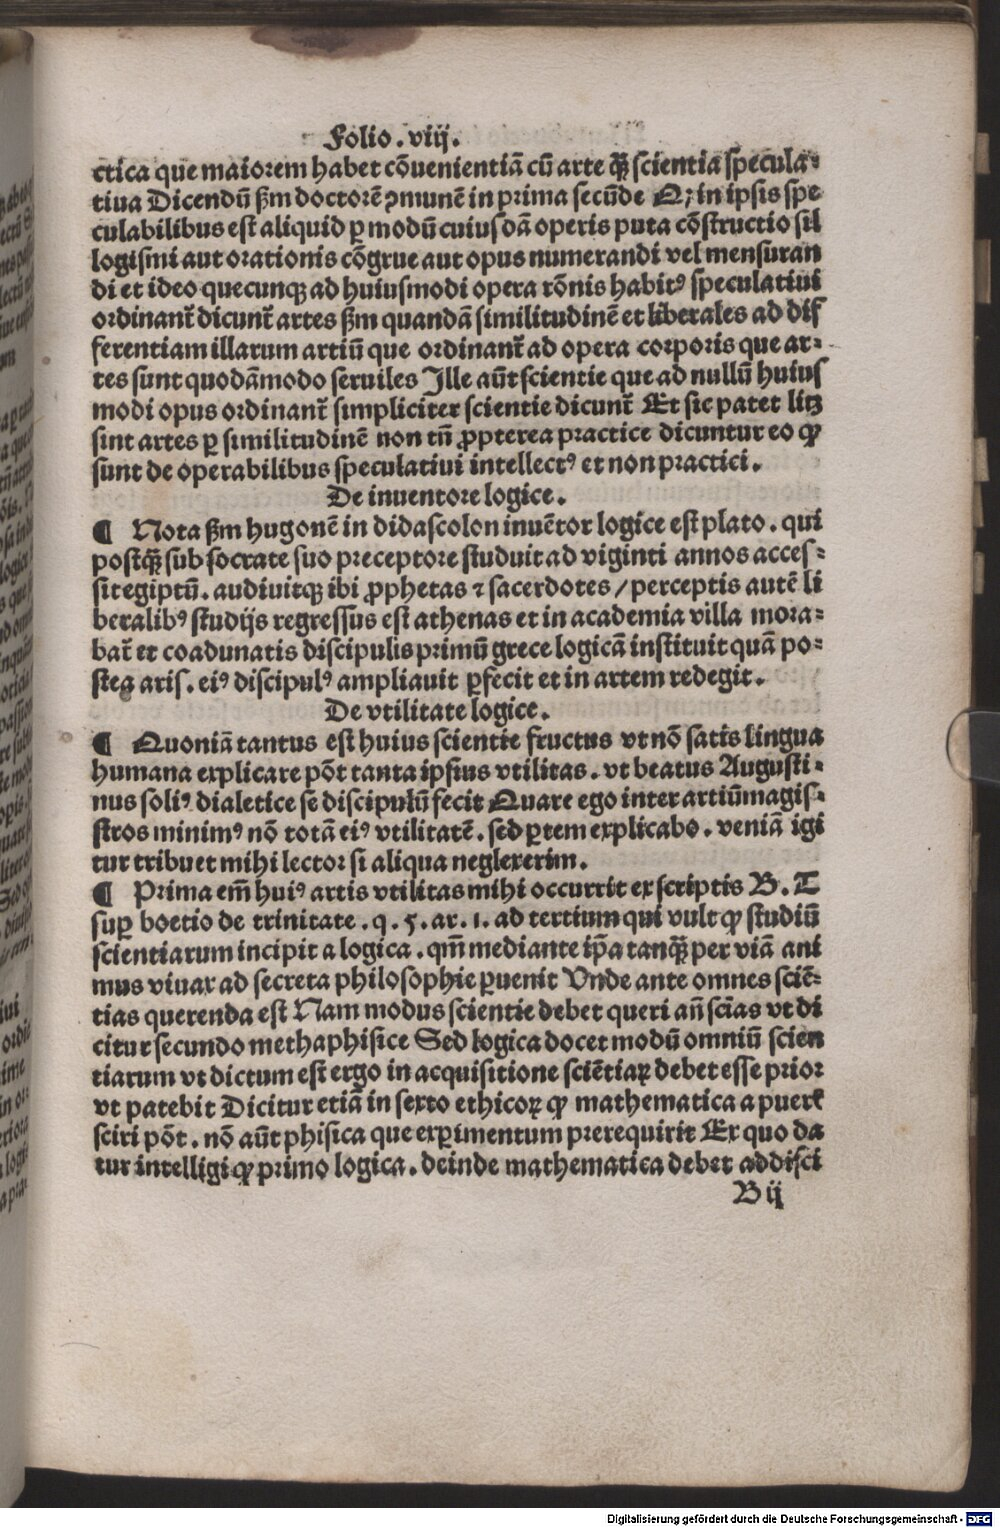 Folio . viij .
ctica que maiorem habet cōuenientiā cū arte q̄ȝ scientia specula⸗
tiua Dicendū ẜm doctorē ꝯmunē in prima secūde Qꝫ in ipsis spe
culabilibus est aliquid ꝑ modū cuiusdā operis puta cōstructio sil
logismi aut orationis cōgrue aut opus numerandi vel mensuran
di et ideo quecunqꝫ ad huiusmodi opera rōnis habitꝰ speculatiui
ordinant᷑ dicunt᷑ artes ẜm quandā similitudinē et liberales ad dif
ferentiam illarum artiū que ordinant᷑ ad opera corporis que ar⸗
tes sunt quodāmodo seruiles Ille aūt scientie que ad nullū huius
modi opus ordinant᷑ simpliciter scientie dicunt᷑ Et sic patet litꝫ
sint artes ꝑ similitudinē non tn̄ ꝓpterea practice dicuntur eo ꝙ
sunt de operabilibus speculatiui intellectꝰ et non practici .
De inuentore logice .
¶ Nota ẜm hugonē in didascolon inuētor logice est plato . qui
postq̄ȝ sub socrate suo preceptore studuit ad viginti annos acces⸗
sit egiptū . audiuitqꝫ ibi ꝓphetas ⁊ sacerdotes / perceptis autē li
beralibꝰ studijs regressus est athenas et in academia villa mora⸗
bat᷑ et coadunatis discipulis primū grece logicā instituit quā po⸗
stea aris . eiꝰ discipulꝰ ampliauit ꝑfecit et in artem redegit .
De vtilitate logice .
¶ Quoniā tantus est huius scientie fructus vt nō satis lingua
humana explicare pōt tanta ipsius vtilitas . vt beatus Augusti⸗
nus soliꝰ dialetice se discipulū fecit Quare ego inter artiū magis⸗
stros minimꝰ nō totā eiꝰ vtilitatē . sed ꝑtem explicabo . veniā igi
tur tribuet mihi lector si aliqua neglexerim .
¶ Prima em̄ huiꝰ artis vtilitas mihi occurrit ex scriptis B . T
suꝑ boetio de trinitate . q . 5 . ar . 1 . ad tertium qui vult ꝙ studiū
scientiarum incipit a logica . qm̄ mediante ip̄a tanq̄ȝ per viā ani
mus viuax ad secreta philosophie ꝑuenit Vnde ante omnes sciē⸗
tias querenda est Nam modus scientie debet queri an̄ sciās vt di
citur secundo methaphisice Sed logica docet modū omniū scien
tiarum vt dictum est ergo in acquisitione sciētiaꝝ debet esse prior
vt patebit Dicitur etiā in sexto ethicoꝝ ꝙ mathematica a puer᷑
sciri pōt . nō aūt phisica que exꝑimentum prerequirit Ex quo da
tur intelligi ꝙ primo logica . deinde mathematica debet addisci
B ij
Digitalisierung gefördert durch die Deutsche Forschungsgemeinschaft - DFG